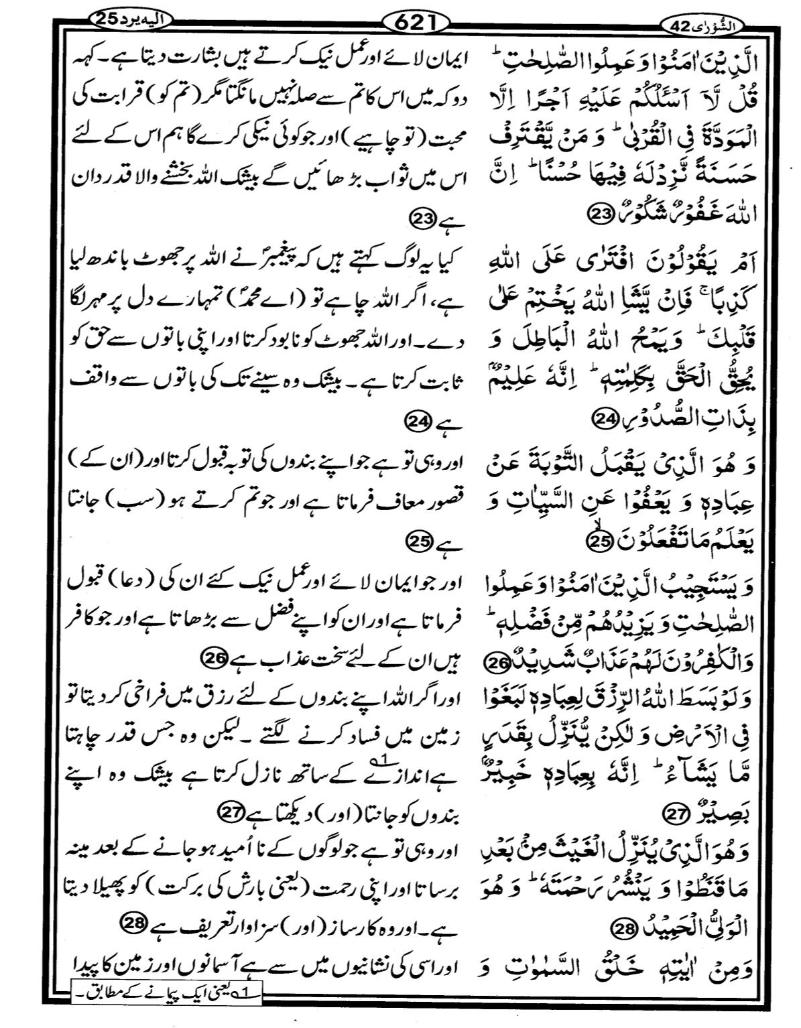 الشُّوْرٰى 42
621
الیه یرد 25
الَّذِيْنَ اٰمَنُوْا وَعَمِلُوا الصّٰلِحٰتِ ؕ
قُلْ لَّاۤ اَسْـَٔلُكُمْ عَلَيْهِ اَجْرًا اِلَّا
الْمَوَدَّةَ فِى الْقُرْبٰى ؕ وَ مَنْ يَّقْتَرِفْ
حَسَنَةً نَّزِدْ لَهٗ فِيْهَا حُسْنًا ؕ اِنَّ
اللّٰهَ غَفُوْرٌ شَكُوْرٌ 23
اَمْ يَقُوْلُوْنَ افْتَرٰى عَلَى اللّٰهِ
كَذِبًا ۚ فَاِنْ يَّشَاِ اللّٰهُ يَخْتِمْ عَلٰى
قَلْبِكَ ؕ وَيَمْحُ اللّٰهُ الْبَاطِلَ وَ
يُحِقُّ الْحَقَّ بِكَلِمٰتِهٖ ؕ اِنَّهٗ عَلِيْمٌۢ
بِذَاتِ الصُّدُوْرِ 24
وَ هُوَ الَّذِىْ يَقْبَلُ التَّوْبَةَ عَنْ
عِبَادِهٖ وَ يَعْفُوْا عَنِ السَّيِّاٰتِ وَ
يَعْلَمُ مَا تَفْعَلُوْنَ ۙ 25
وَ يَسْتَجِيْبُ الَّذِيْنَ اٰمَنُوْا وَ عَمِلُوا
الصّٰلِحٰتِ وَ يَزِيْدُهُمْ مِّنْ فَضْلِهٖ ؕ
وَالْكٰفِرُوْنَ لَهُمْ عَذَابٌ شَدِيْدٌ 26
وَلَوْ بَسَطَ اللّٰهُ الرِّزْقَ لِعِبَادِهٖ لَبَغَوْا
فِى الْاَرْضِ وَ لٰكِنْ يُّنَزِّلُ بِقَدَرٍ
مَّا يَشَآءُ ؕ اِنَّهٗ بِعِبَادِهٖ خَبِيْرٌۢ
بَصِيْرٌ 27
وَهُوَ الَّذِىْ يُنَزِّلُ الْغَيْثَ مِنْۢ بَعْدِ
مَا قَنَطُوْا وَ يَنْشُرُ رَحْمَتَهٗ ؕ وَ هُوَ
الْوَلِىُّ الْحَمِيْدُ 28
وَمِنْ اٰيٰتِهٖ خَلْقُ السَّمٰوٰتِ وَ
ایمان لائے اور عمل نیک کرتے ہیں بشارت دیتا ہے۔ کہہ
دو کہ میں اس کا تم سے صلہ نہیں مانگتا مگر (تم کو) قرابت کی
محبت (تو چاہیے) اور جو کوئی نیکی کرے گا ہم اس کے لئے
اس میں ثواب بڑھائیں گے بیشک اللہ بخشنے والا قدر دان
ہے 23
کیا یہ لوگ کہتے ہیں کہ پیغمبرؐ نے اللہ پر جھوٹ باندھ لیا
ہے، اگر اللہ چاہے تو (اے محمدؐ) تمہارے دل پر مہر لگا
دے۔ اور اللہ جھوٹ کو نابود کرتا اور اپنی باتوں سے حق کو
ثابت کرتا ہے۔ بیشک وہ سینے تک کی باتوں سے واقف
ہے 24
اور وہی تو ہے جو اپنے بندوں کی توبہ قبول کرتا اور (ان کے)
قصور معاف فرماتا ہے اور جو تم کرتے ہو (سب) جانتا
ہے 25
اور جو ایمان لائے اور عمل نیک کئے ان کی (دعا) قبول
فرماتا ہے اور ان کو اپنے فضل سے بڑھاتا ہے اور جو کافر
ہیں ان کے لئے سخت عذاب ہے 26
اور اگر اللہ اپنے بندوں کے لئے رزق میں فراخی کر دیتا تو
زمین میں فساد کرنے لگتے ۔ لیکن وہ جس قدر چاہتا
ہے اندازے 1 کے ساتھ نازل کرتا ہے بیشک وہ اپنے
بندوں کو جانتا (اور) دیکھتا ہے 27
اور وہی تو ہے جو لوگوں کے نا اُمید ہو جانے کے بعد مینہ
برساتا اور اپنی رحمت (یعنی بارش کی برکت) کو پھیلا دیتا
ہے۔ اور وہ کارساز (اور) سزاوار تعریف ہے 28
اور اسی کی نشانیوں میں سے ہے آسمانوں اور زمین کا پیدا
1 یعنی ایک پیمانے کے مطابق۔